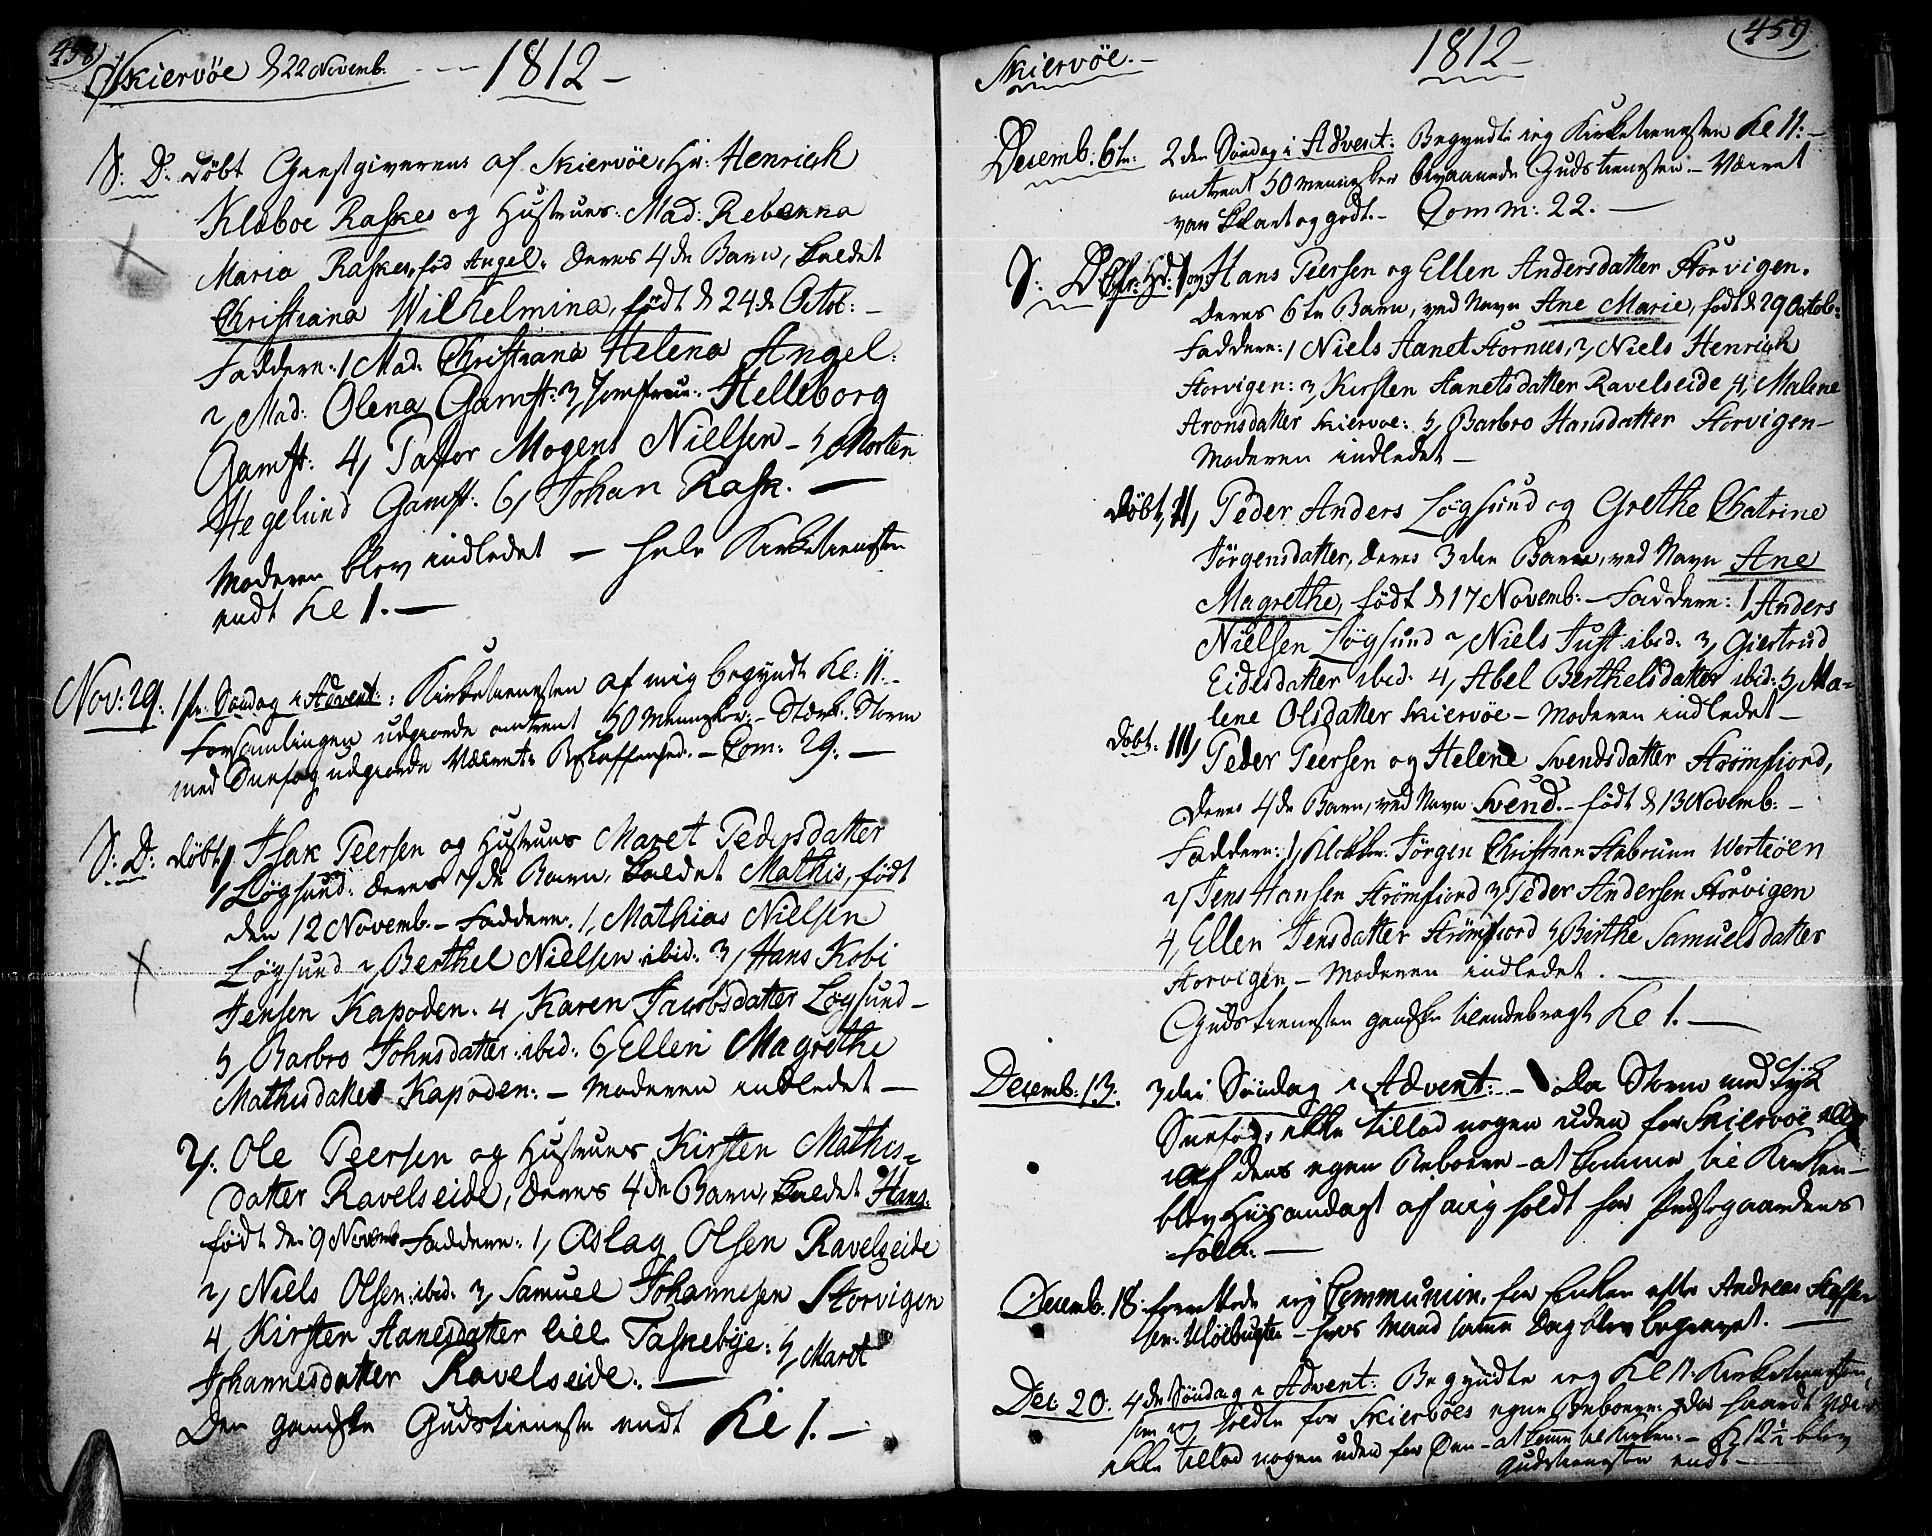 458
Skiervöe d 22 Novemb. 1812
S: D: Döbt Giestgiverens af Skiervöe, Hr: Henrich
Klæboe Raskes og Hustrues: Mad: Rebenna
Maria Raskes, fød Angel, deres 4de Barn, kaldet
Christiana Wilhelmina, født d 24de Octob:
Faddere: 1, Mad: Christiana Helena Angel:
2, Mad: Olena Gamst: 3, Jomfrue: Helleborg
Gamst: 4, Pastor Mogens Nielsen – 5, Morten
Hegelund Gamst: 6, Johan Rask. –
Moderen blev indledet – hele Kirketienesten
endt Kl 1. –
Nov: 29: 1ste Söndag i Advent: Kirketienesten af mig begyndt Kl: 11.–
Forsamlingen udgiorde omtrent 50 Mennesker. – Stærk Storm
med Sneefog udgiorde Veirets Beskaffenhed. – Com: 29. –
S: D: döbt 1, Isak Peersen og Hustrues Maret Pedersdatter
Løgsund: deres 7de Barn, kaldet Mathis, født
den 12 Novemb. – Faddere: 1, Mathias Nielsen
Løgsund 2, Berthel Nielsen ibid: 3, Hans Kobi
Jensen Kapoden. 4, Karen Jacobsdatter Løgsund –
5, Barbro Johnsdatter ibid: 6, Ellen Magrethe
Mathisdatter Kapoden: – Moderen indledet –
2, Ole Peersen og Hustrues Kirsten Mathis=
datter Ravelseide, deres 4de Barn, kaldet Hans.
født den 9 Novemb. Faddere: 1, Aslag Olsen Ravelseide
2, Niels Olsen ibid. 3, Samuel Johannesen Storvigen
4, Kirsten Aanesdatter lill Taskebye: 5, Maret
Johannesdatter Ravelseide. –
Den gandske Gudstieneste endt Kl 1. –
459
Skiervöe. – 1812 –
Desemb: 6te: 2den Söndag i Advent: Begyndte ieg Kirketienesten Kl 11: –
omtrent 50 Mennesker bivaanede Gudstienesten. – Veiret
var klart og godt. – Comm: 22. –
S: D: 1, Hans Peersen og Ellen Andersdatter Storvigen.
deres 6te Barn, ved Navn Ane Marie, født d 29 Octob:
Faddere: 1 Niels Aanet Stornes, 2, Niels Henrich
Storvigen: 3, Kirsten Aanetsdatter Ravelseide 4, Malene
Aronsdatter Skiervoe: 5, Barbro Hansdatter Storvigen –
Moderen indledet –
Döbt, II, Peder Anders Løgsund og Grethe Chatrine
Jörgensdatter, deres 3die Barn, ved Navn Ane
Magrethe, født d 17 Novemb: – Faddere: 1, Anders
Nielsen Løgsund 2, Niels Just ibid: 3, Giertrud
Eidesdatter ibid. 4, Abel Berthelsdatter ibid: 5, Ma=
lene Olsdatter Skiervöe – Moderen indledet –
Döbt: III, Peder Peersen og Helene Svendsdatter Strømfiord,
deres 4de Barn, ved Navn Svend. – født d 13 Novemb: –
Faddere: 1, Klokker Jörgen Christian Stabrunn Wortöen
2, Jens Hansen Strømfiord 3, Peder Andersen Storvigen
4, Ellen Jensdatter Strømfiord 5, Birthe Samuelsdatter
Storvigen – Moderen indledet. –
Gudstienesten gandske tilendebragt Kl 1. –
Decemb: 13. 3die Söndag i Advent: – Da Storm med tyk
Sneefog, ikke tillod nogen uden for Skiervöe eller
af dens egne Beboere – at komme til Kirken –
blev Husandagt af mig holdt for Præstegaardens
Folk. –
Decemb. 18. forrettede ieg Communion, for Enken efter Andreas Steffen
sen: – hvis Mand samme Dag blev begravet. –
Dec 20. 4de Söndag i Advent: Begyndte ieg Kl 11. Kirketienesten,
som ieg holdte for Skiervöes egne Beboere: da haardt Veir
ikke tillod nogen uden for Øen – at komme til Kirken: – Kl 12½ blev
Gudstienesten endt –